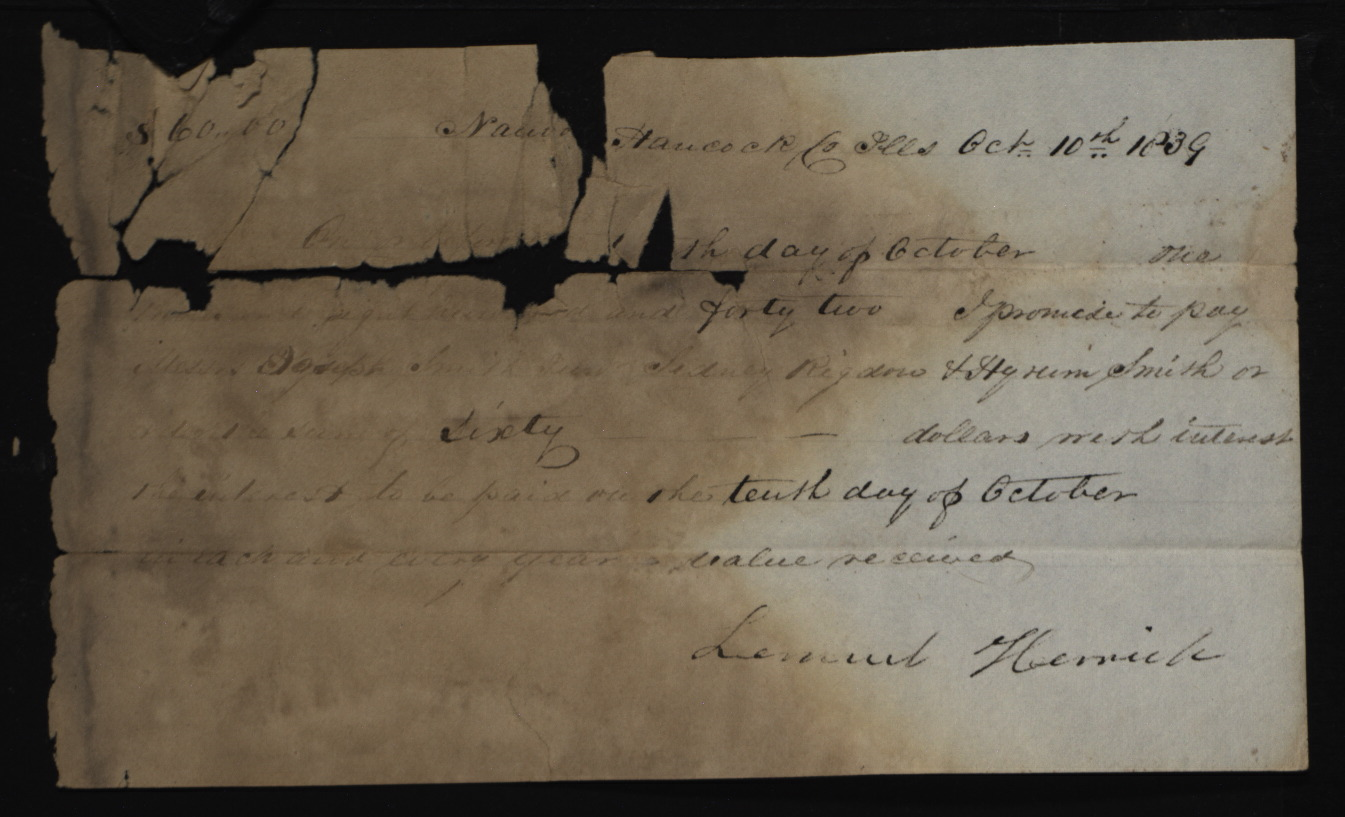 $60.00 Nauvoo Hancock Co Ills Oct. 10th 1839
On th day of October one
eight hundred and forty two I promise to pay
Messrs Joseph Smith Jun Sidney Rigdon & Hyrum Smith or
sum of Sixty dollars with interest
the interest to be paid on the tenth day of October
in each and every year value received
Lemuel Herrick